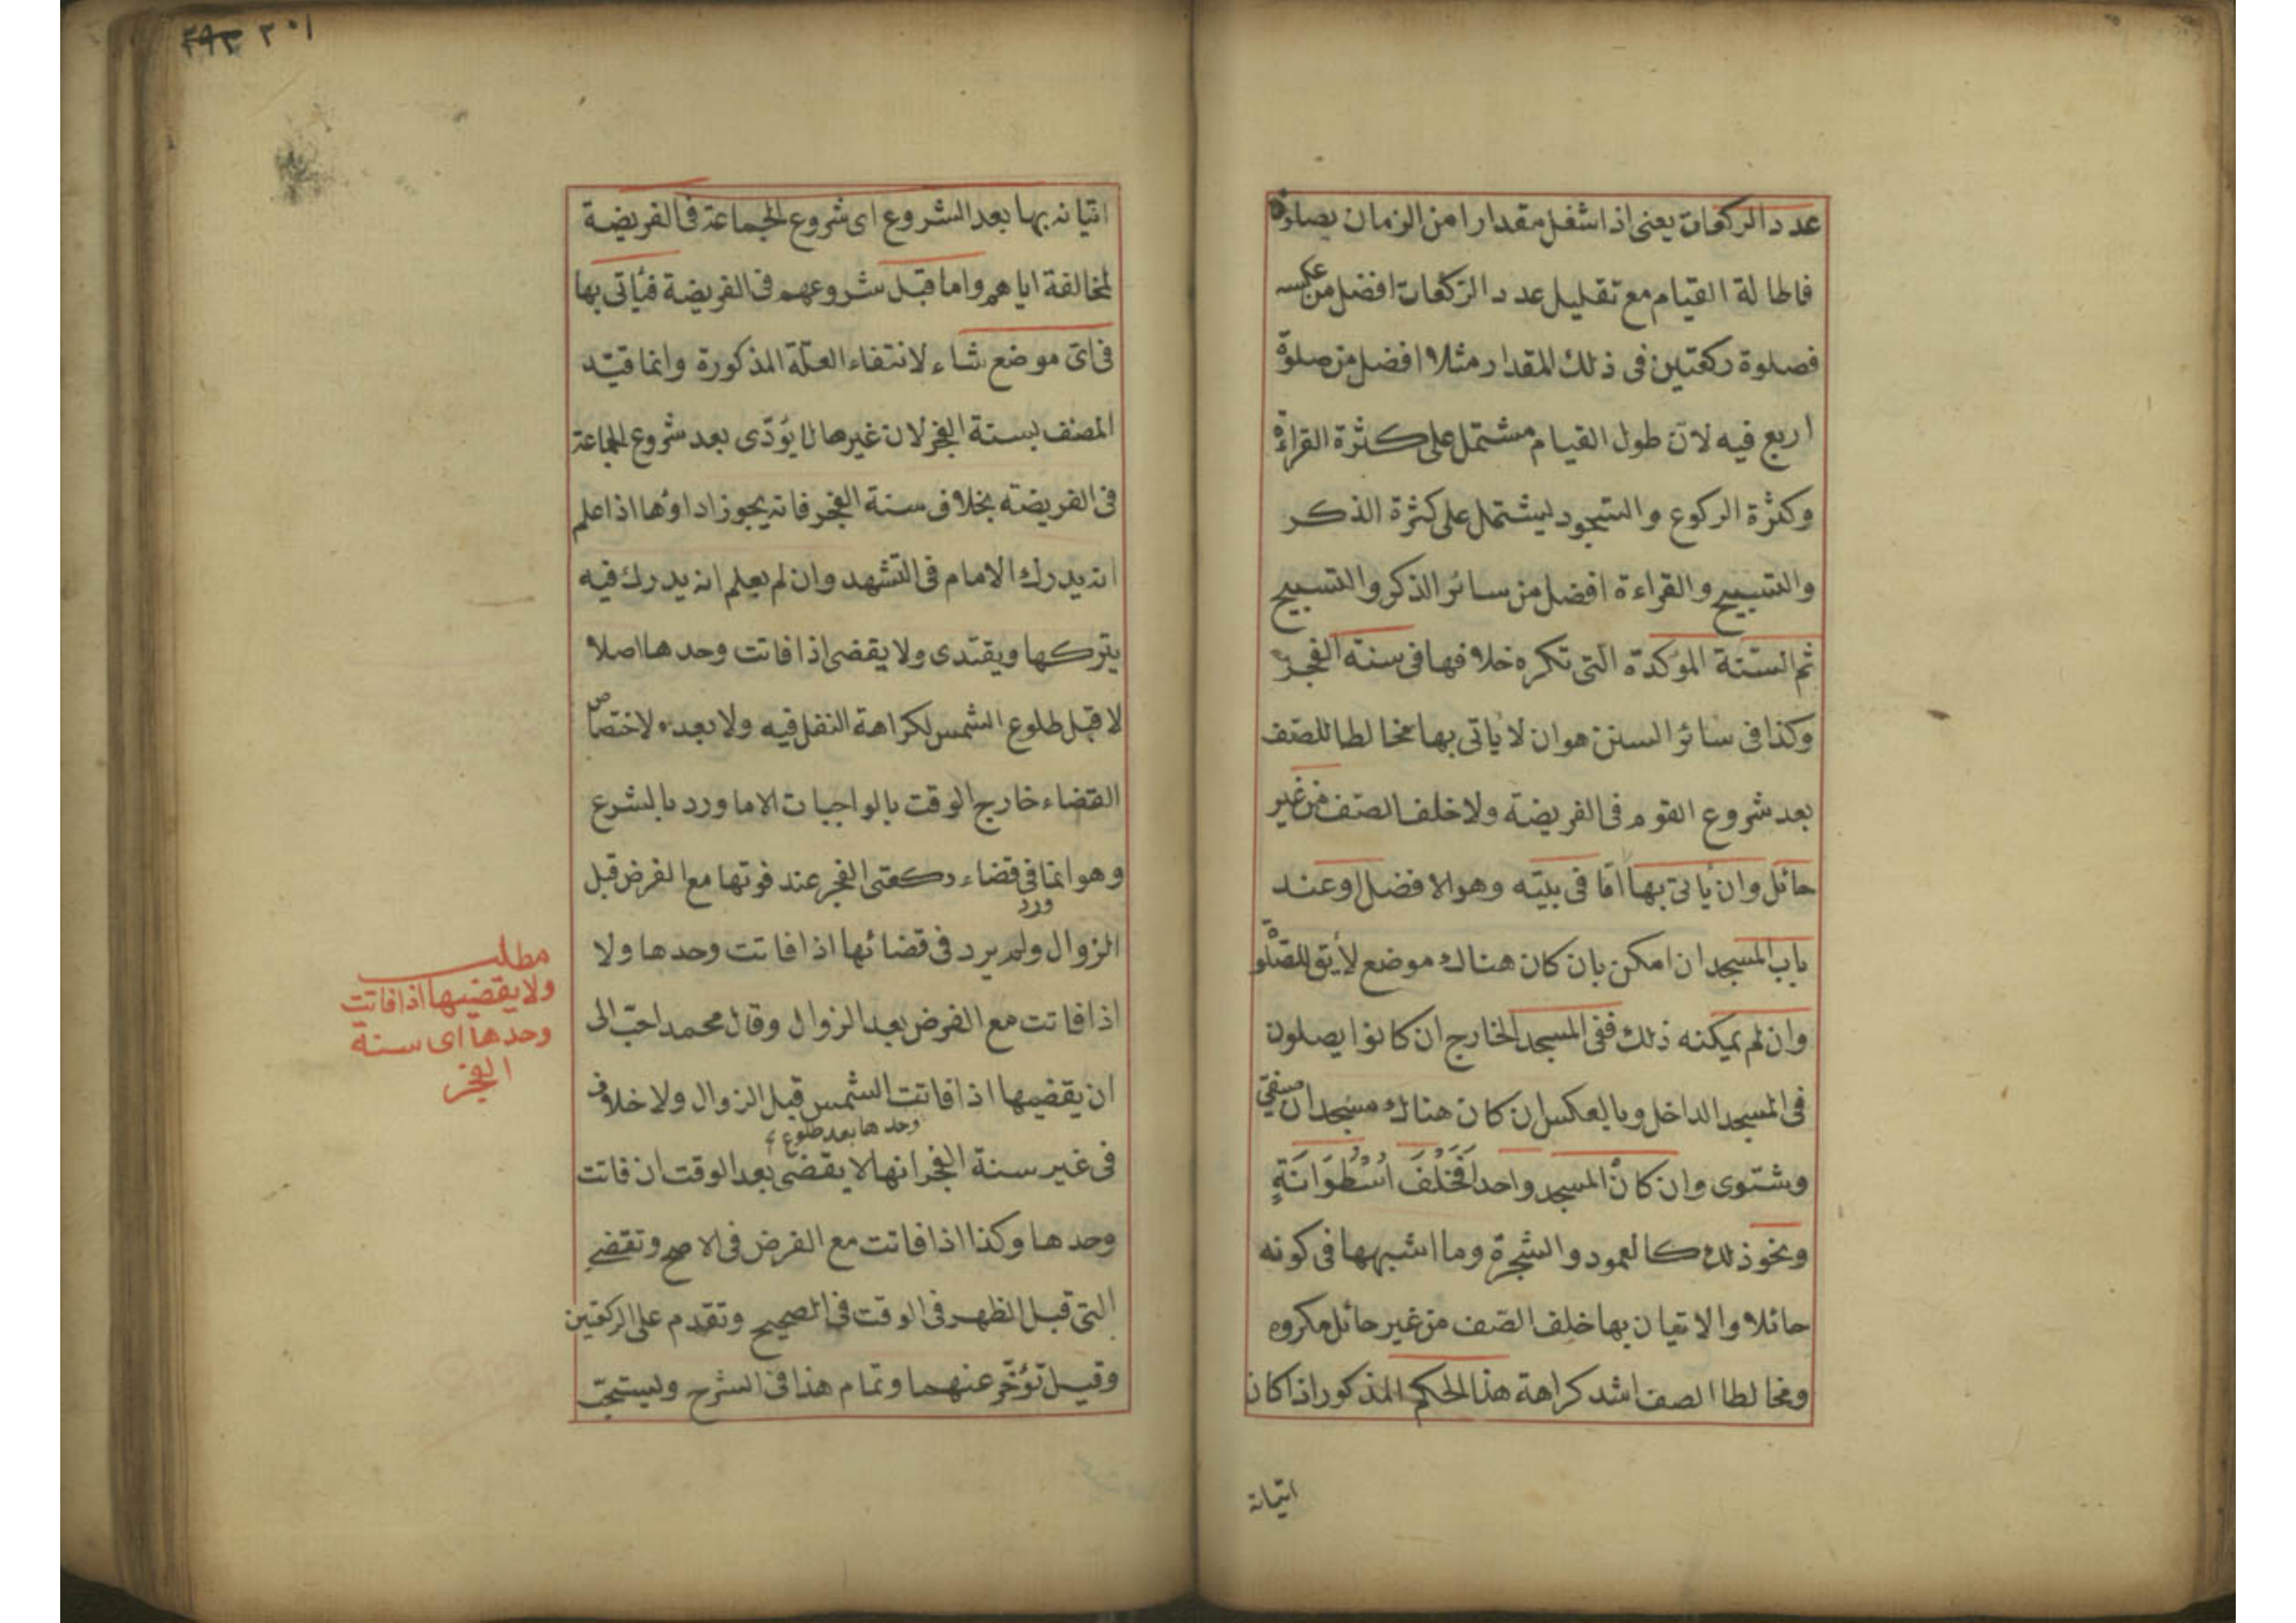 عدد الركعات يعنى اذا شغل مقدارا من الزمان بصلوة
فاطالة القيام مع تقليل عدد الركعات افضل من عكسه
فصلوة ركعتين فى ذلك المقدار مثلا افضل من صلوة
اربع فيه لان طول القيام مشتمل على كثرة القراءة
وكثرة الركوع والسجود ليشتمل على كثرة الذكر
والتسبيح والقراءة افضل من سائر الذكر والتسبيح
ثم السنة المؤكدة التى تكره خلافها فى سنة الفجر
وكذا فى سائر السنن هو ان لا يأتى بها مخالطا للصف
بعد شروع القوم فى الفريضة ولا خلف الصف من غير
حائل وان يأتى بها اما فى بيته وهو الافضل او عند
باب المسجد ان امكن بان كان هناك موضع لايق للصلو
وان لم يمكنه ذلك ففى المسجد الخارج ان كانوا يصلون
فى المسجد الداخل وبالعكس ان كان هناك مسجدان صيفى
وشتوى وان كان المسجد واحدا فَخَلْفَ اُسْطُوَانَةٍ
ونحو ذلك كالعمود والشجرة وما اشبهها فى كونه
حائلا والاتيان بها خلف الصف من غير حائل مكروه
ومخالطا الصف اشد كراهة هذا الحكم المذكور اذا كان
اتيانه
٣٠١ ٢٩٣
اتيانه بها بعد الشروع اى شروع الجماعة فى الفريضة
لمخالفة اياهم واما قبل شروعهم فى الفريضة فيأتى بها
فى اى موضع شاء لانتفاء العلة المذكورة وانما قيد
المصنف بسنة الفجر لان غيرها لا يؤدى بعد شروع الجماعة
فى الفريضة بخلاف سنة الفجر فانه يجوز اداؤها اذا علم
انه يدرك الامام فى التشهد وان لم يعلم انه يدرك فيه
يتركها ويقتدى ولا يقضى اذا فاتت وحدها اصلا
لا قبل طلوع الشمس لكراهة النفل فيه ولا بعده لاختصاص
القضاء خارج الوقت بالواجبات الا ما ورد بالشرع
وهو انما ورد فى قضاء ركعتى الفجر عند فوتها مع الفرض قبل
الزوال ولم يرد فى قضائها اذا فاتت وحدها ولا
اذا فاتت مع الفرض بعد الزوال وقال محمد احب الى
ان يقضيها اذا فاتت وحدها بعد طلوع الشمس قبل الزوال ولا خلاف
فى غير سنة الفجر انها لا يقضى بعد الوقت ان فاتت
وحدها وكذا اذا فاتت مع الفرض فى الاصح وتقضى
التى قبل الظهر فى الوقت فى الصحيح وتقدم على الركعتين
وقيل تؤخر عنهما وتمام هذا فى الشرح وليستحب
مطلب
ولا يقضيها اذا فاتت
وحدها اى سنة
الفجر